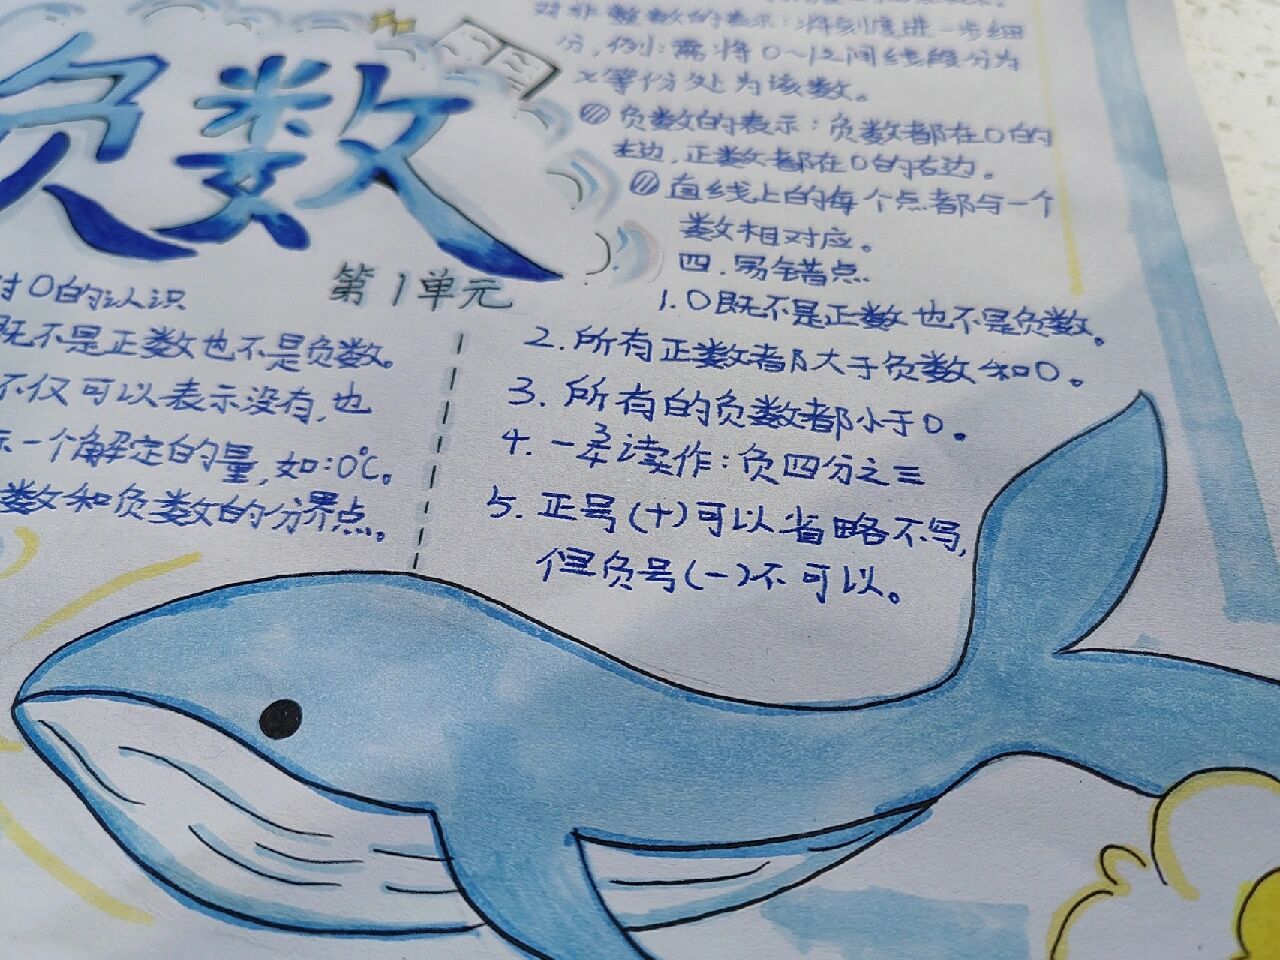 负数
第1单元
对0的认识
既不是正数也不是负数。
不仅可以表示没有,也
示一个解定的量,如:0℃。
数和负数的分界点。
对非整数的表示:将刻度进一步细
分,例:需将0~1之间线段分为
x等份处为该数。
负数的表示:负数都在0的
左边,正数都在0的右边。
直线上的每个点都与一个
数相对应。
四.易错点
1.0既不是正数也不是负数。
2.所有正数都大于负数和0。
3.所有的负数都小于0。
4.-3/4读作:负四分之三
5.正号(+)可以省略不写,
但负号(-)不可以。